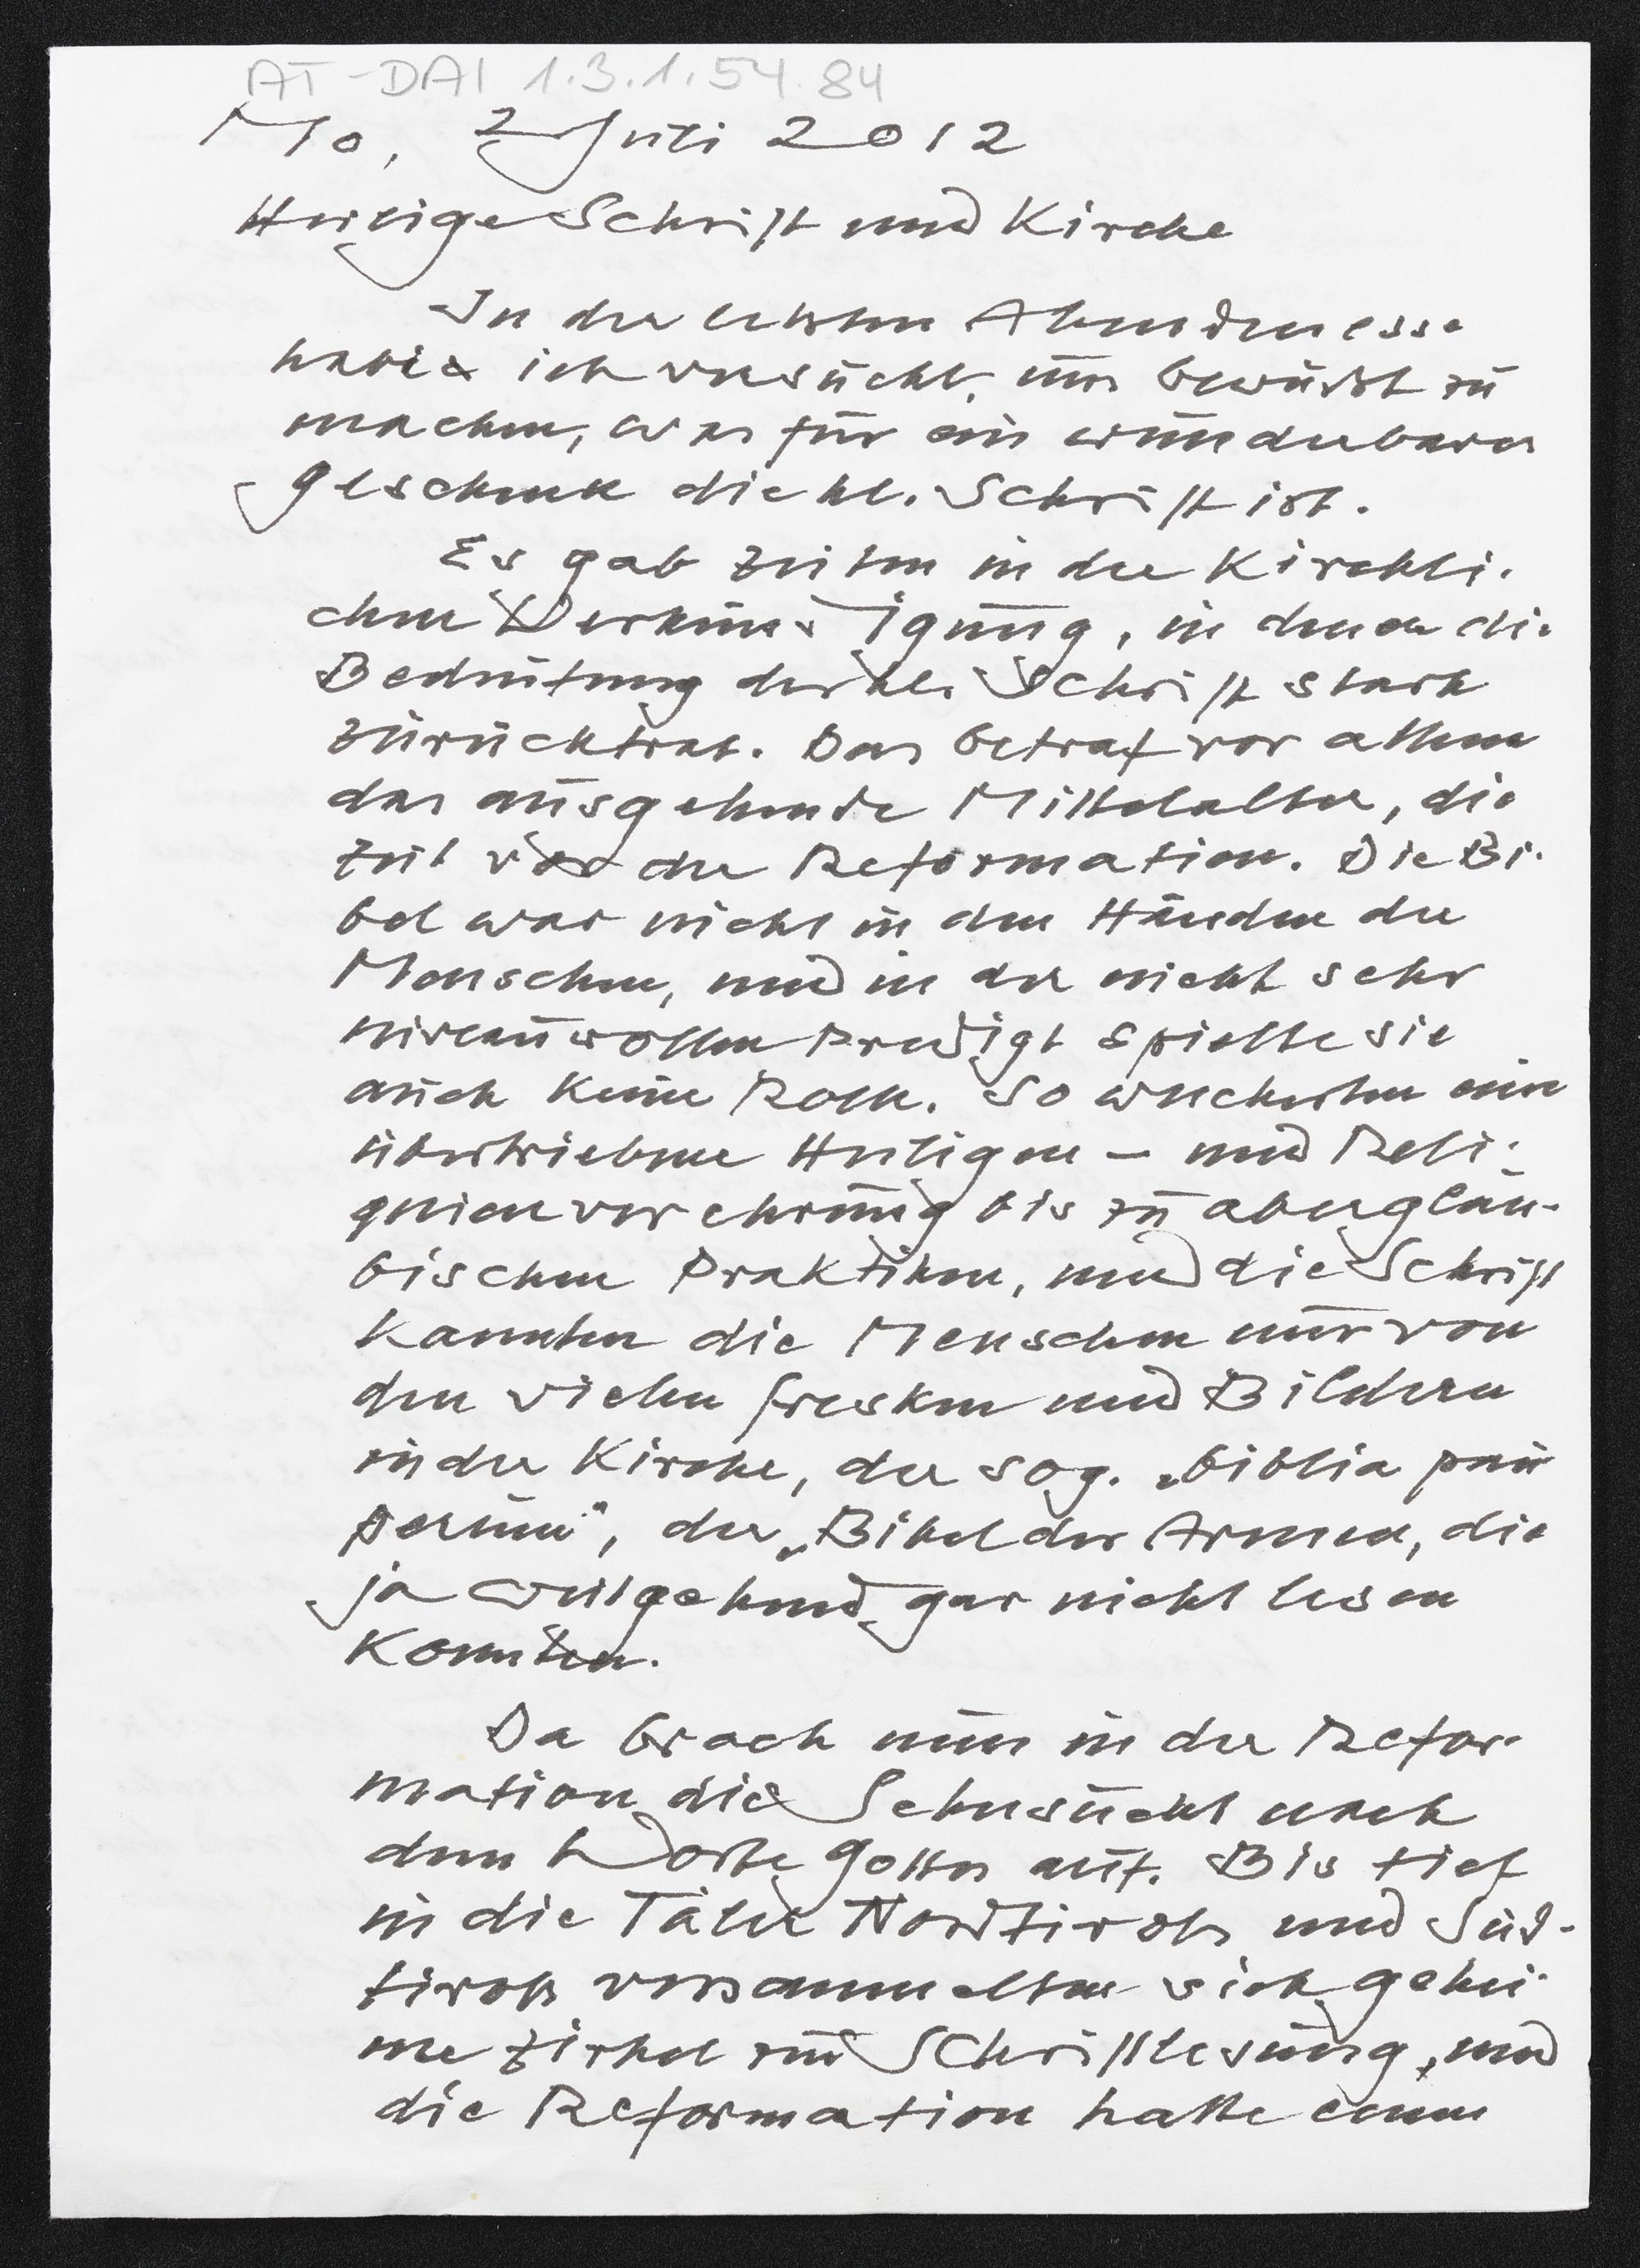 AT-DAI 1.3.1.54.84
Mo, 2 Juli 2012
Heilige Schrift und Kirche
In der letzten Abendmesse
habe ich versucht, uns bewußt zu
machen, was für ein wunderbares
Geschenk die hl. Schrift ist.
Es gab Zeiten in der kirchli-
chen Verkündigung, in denen die
Bedeutung der hl. Schrift stark
zurücktrat. Das betraf vor allem
das ausgehende Mittelalter, die
Zeit vor der Reformation. Die Bi-
bel war nicht in den Händen der
Menschen, und in der nicht sehr
niveauvollen Predigt spielte sie
auch keine Rolle. So wucherten eine
übertriebene Heiligen- und Reli-
quienverehrung bis zu abergläu-
bischen Praktiken, und die Schrift
kannten die Menschen nur von
den vielen Fresken und Bildern
in der Kirche, der sog. „biblia pau
perum", der „Bibel der Armen, die
ja weitgehend gar nicht lesen
konnten.
Da brach nun in der Refor-
mation die Sehnsucht nach
dem Worte Gottes auf. Bis tief
in die Täler Nordtirols und Süd-
tirols versammelten sich gehei-
me Zirkel zur Schriftlesung, und
die Reformation hatte einen